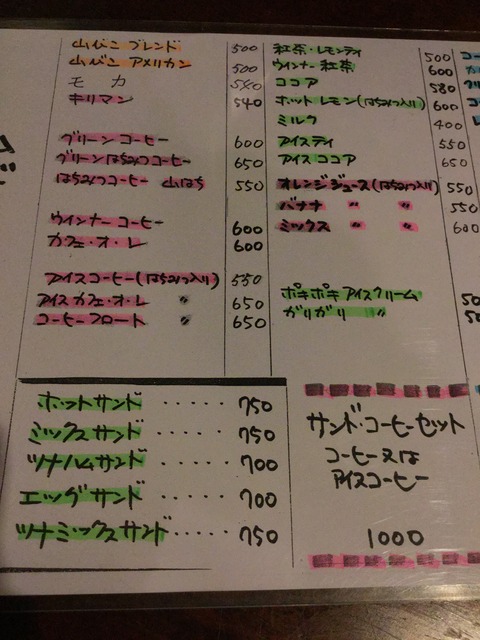 山びこ ブレンド 500
山びこ アメリカン 500
モカ 540
キリマン 540
グリーン コーヒー 600
グリーンはちみつコーヒー 650
はちみつコーヒー 山はち 550
ウインナー コーヒー 600
カフェ・オ・レ 600
アイスコーヒー(はちみつ入り) 550
アイスカフェ・オ・レ 〃 650
コーヒーフロート 〃 650
紅茶・レモンティ 500
ウインナー 紅茶 600
ココア 580
ホットレモン(はちみつ入り) 600
ミルク 400
アイスティ 550
アイスココア 650
オレンジジュース(はちみつ入り) 550
バナナ 〃 〃 550
ミックス 〃 〃 600
ポキポキアイスクリーム
ガリガリ 〃
ホットサンド ・・・・・ 750
ミックスサンド ・・・・ 750
ツナハムサンド ・・・・ 700
エッグサンド ・・・・・ 700
ツナミックスサンド ・・・・・ 750
サンド・コーヒーセット
コーヒー又は
アイスコーヒー
1000